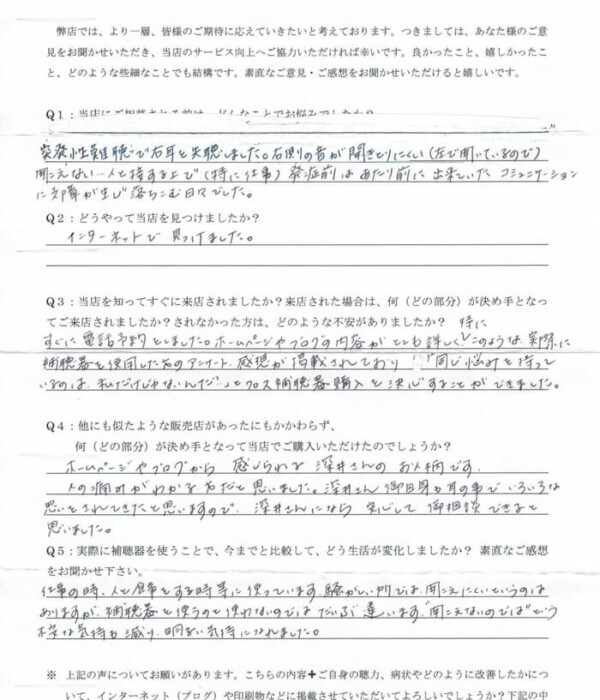 弊店では、より一層、皆様のご期待に応えていきたいと考えております。つきましては、あなた様のご意
見をお聞かせいただき、当店のサービス向上へご協力いただければ幸いです。良かったこと、嬉しかったこ
と、どのような些細なことでも結構です。素直なご意見・ご感想をお聞かせいただけると嬉しいです。
Q1：当店にご相談される前は、どんなことでお悩みでしたか？
突発性難聴で右耳を失聴しました。右側の音が聞きとりにくい（左で聞いているので）
聞こえない…人と接する上で（特に仕事）発症前はあたり前に出来ていたコミュニケーション
に支障が生じ落ちこむ日々でした。
Q2：どうやって当店を見つけましたか？
インターネットで見つけました。
Q3：当店を知ってすぐに来店されましたか？来店された場合は、何（どの部分）が決め手となっ
てご来店されましたか？されなかった方は、どのような不安がありましたか？ 特に
すぐに電話予約をしました。ホームページやブログの内容がとても詳しくどのような実際に
補聴器を使用した方のアンケート、感想が掲載されており "同じ悩みを持って
いるのは、私だけじゃないんだ"とプラス補聴器購入を決心することができました。
Q4：他にも似たような販売店があったにもかかわらず、
何（どの部分）が決め手となって当店でご購入いただけたのでしょうか？
ホームページやブログから感じられる深井さんのお人柄です。
人の痛みがわかる方だと思いました。深井さん御自身も耳の事でいろいろな
思いをされてきたと思いますので、深井さんになら安心して御相談できると
思いました。
Q5：実際に補聴器を使うことで、今までと比較して、どう生活が変化しましたか？ 素直なご感想
をお聞かせ下さい。
仕事の時、人と食事をする時等に使っています。騒がしい所では、聞こえにくいというのは
ありますが、補聴器を使うのと使わないのではだいぶ違います。"聞こえないのでは"という
不安な気持も減り、明るい気持になれました。
※ 上記の声についてお願いがあります。こちらの内容＋ご自身の聴力、病状やどのように改善したかにつ
いて、インターネット（ブログ）や印刷物などに掲載させていただいてよろしいでしょうか？下記の中